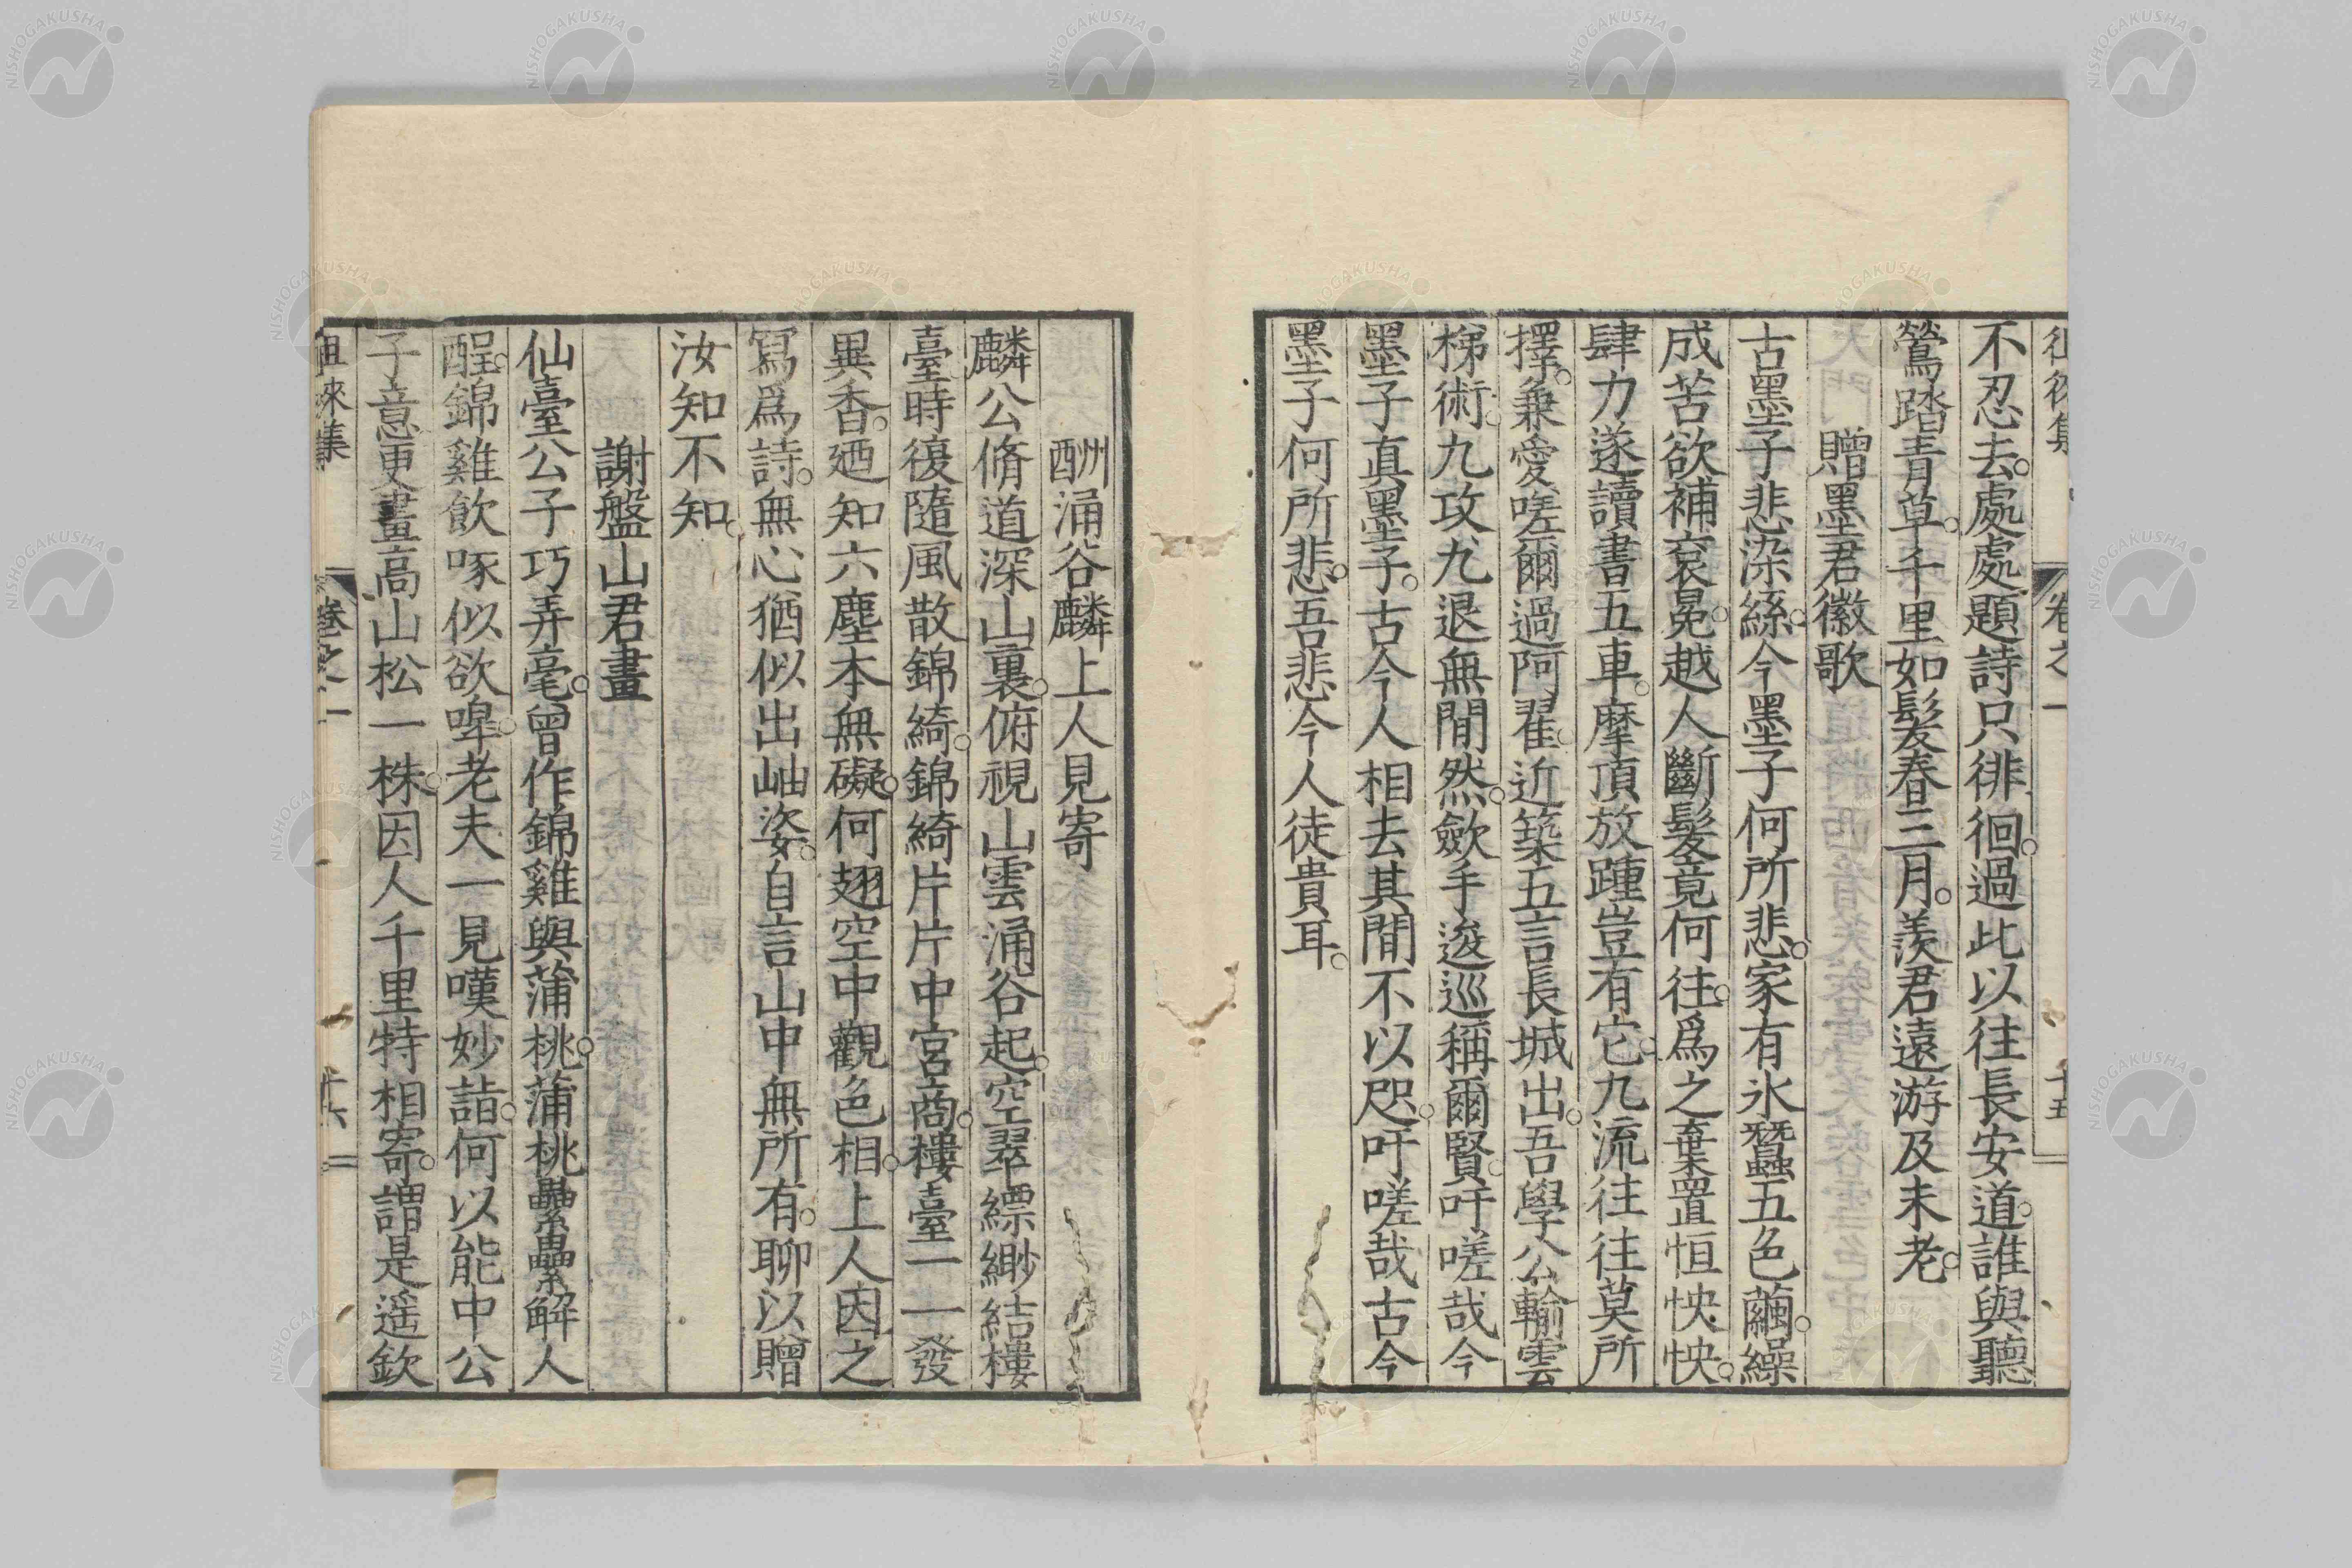 徂徠集 卷之一 十五
不忍去。處處題詩只徘徊。過此以往長安道。誰與聽
鶯踏青草。千里如髮春三月。羨君遠游及未老。
贈墨君徽歌
古墨子悲染絲。今墨子何所悲。家有氷蠶五色繭。繰
成苦欲補袞冕。越人斷髮竟何往。爲之棄置恒怏怏。
肆力遂讀書五車。摩頂放踵豈有它。九流往往莫所
擇。兼愛嗟爾過阿翟。近築五言長城出。吾學公輸雲
梯術。九攻九退無間然。歛手逡巡稱爾賢。吁嗟哉今
墨子真墨子。古今人相去其間不以咫。吁嗟哉古今
墨子何所悲。吾悲今人徒貴耳。
酬涌谷麟上人見寄
麟公脩道深山裏。俯視山雲涌谷起。空翠縹緲結樓
臺時復隨風散錦綺。錦綺片片中宮商。樓臺一一發
異香。廼知六塵本無礙。何翅空中觀色相。上人因之
寫爲詩。無心猶似出岫姿。自言山中無所有。聊以贈
汝知不知。
謝盤山君畫
仙臺公子巧弄毫。曾作錦雞與蒲桃。蒲桃纍纍解人
酲。錦雞飲啄似欲嘷。老夫一見嘆妙詣。何以能中公
子意更畫高山松一株。因人千里特相寄。謂是遥欽
徂徠集 卷之一 十六